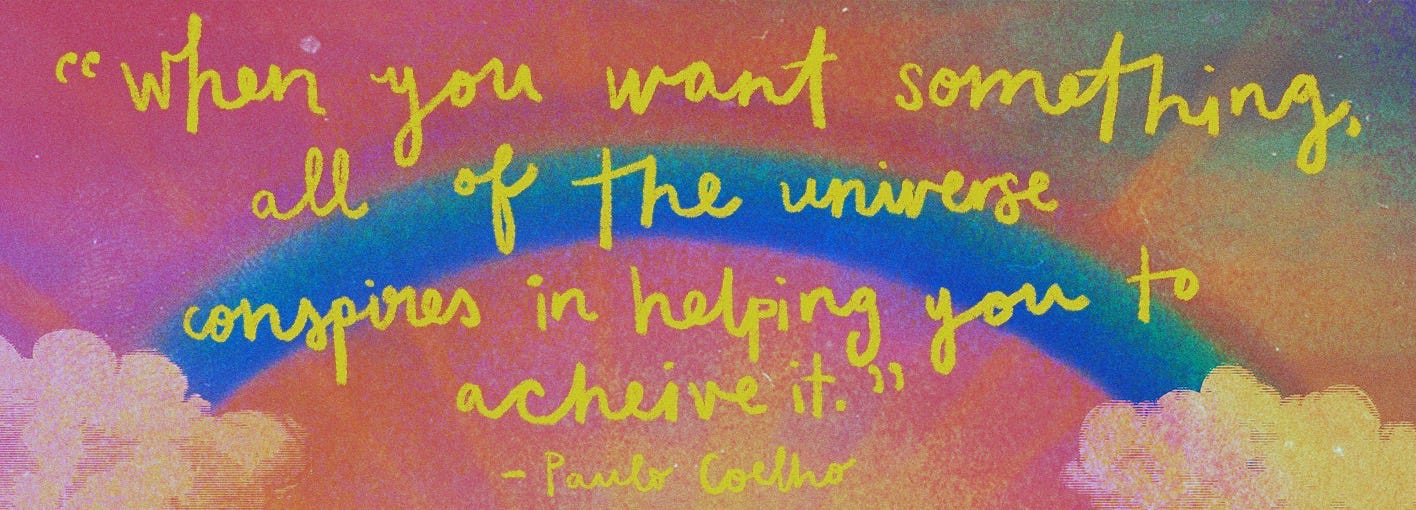 “when you want something,
all of the universe
conspires in helping you to
acheive it.”
- Paulo Coelho